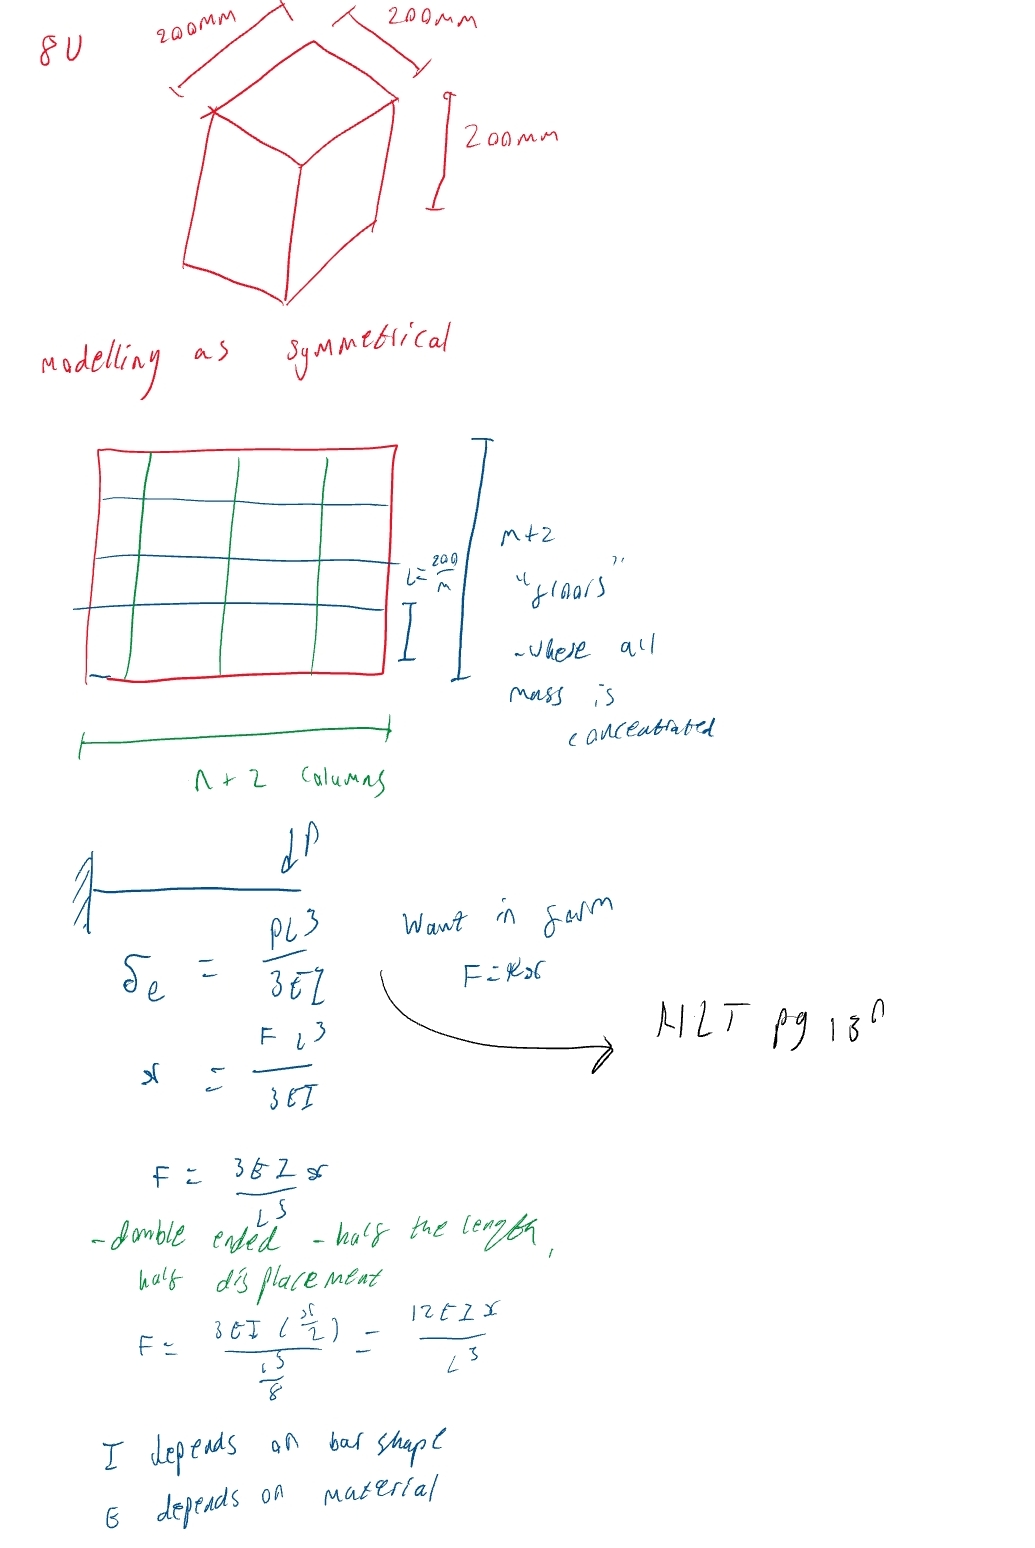 8U
200mm
200mm
200mm
modelling as symmetrical
L=200/m
m+2
"floors"
-where all
mass is
concentrated
n+2 columns
↓P
δe = PL³/3EI
Want in form
F=kx
x = FL³/3EI
HLT pg 130
F = 3EIx/L³
-double ended - half the length,
half displacement
F = 3EI(x/2)/(L³/8) = 12EIx/L³
I depends on bar shape
E depends on material